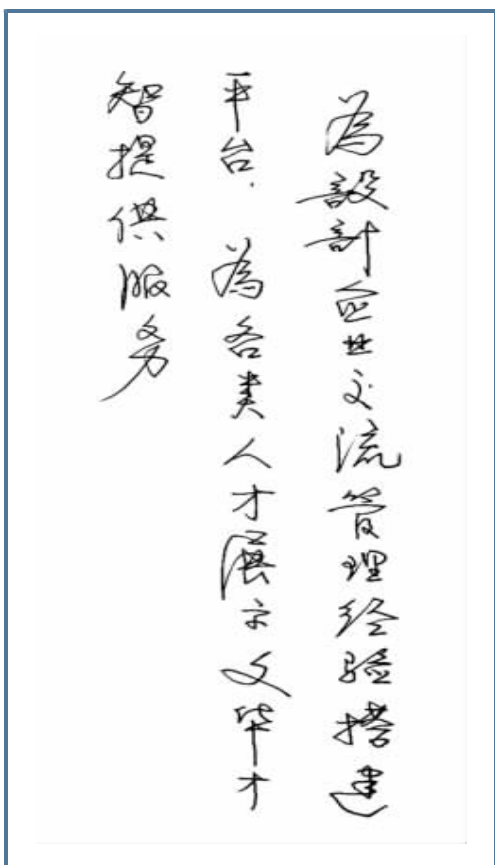 為設計企业交流管理经验搭建
平台，為各类人才展示文华才
智提供服务